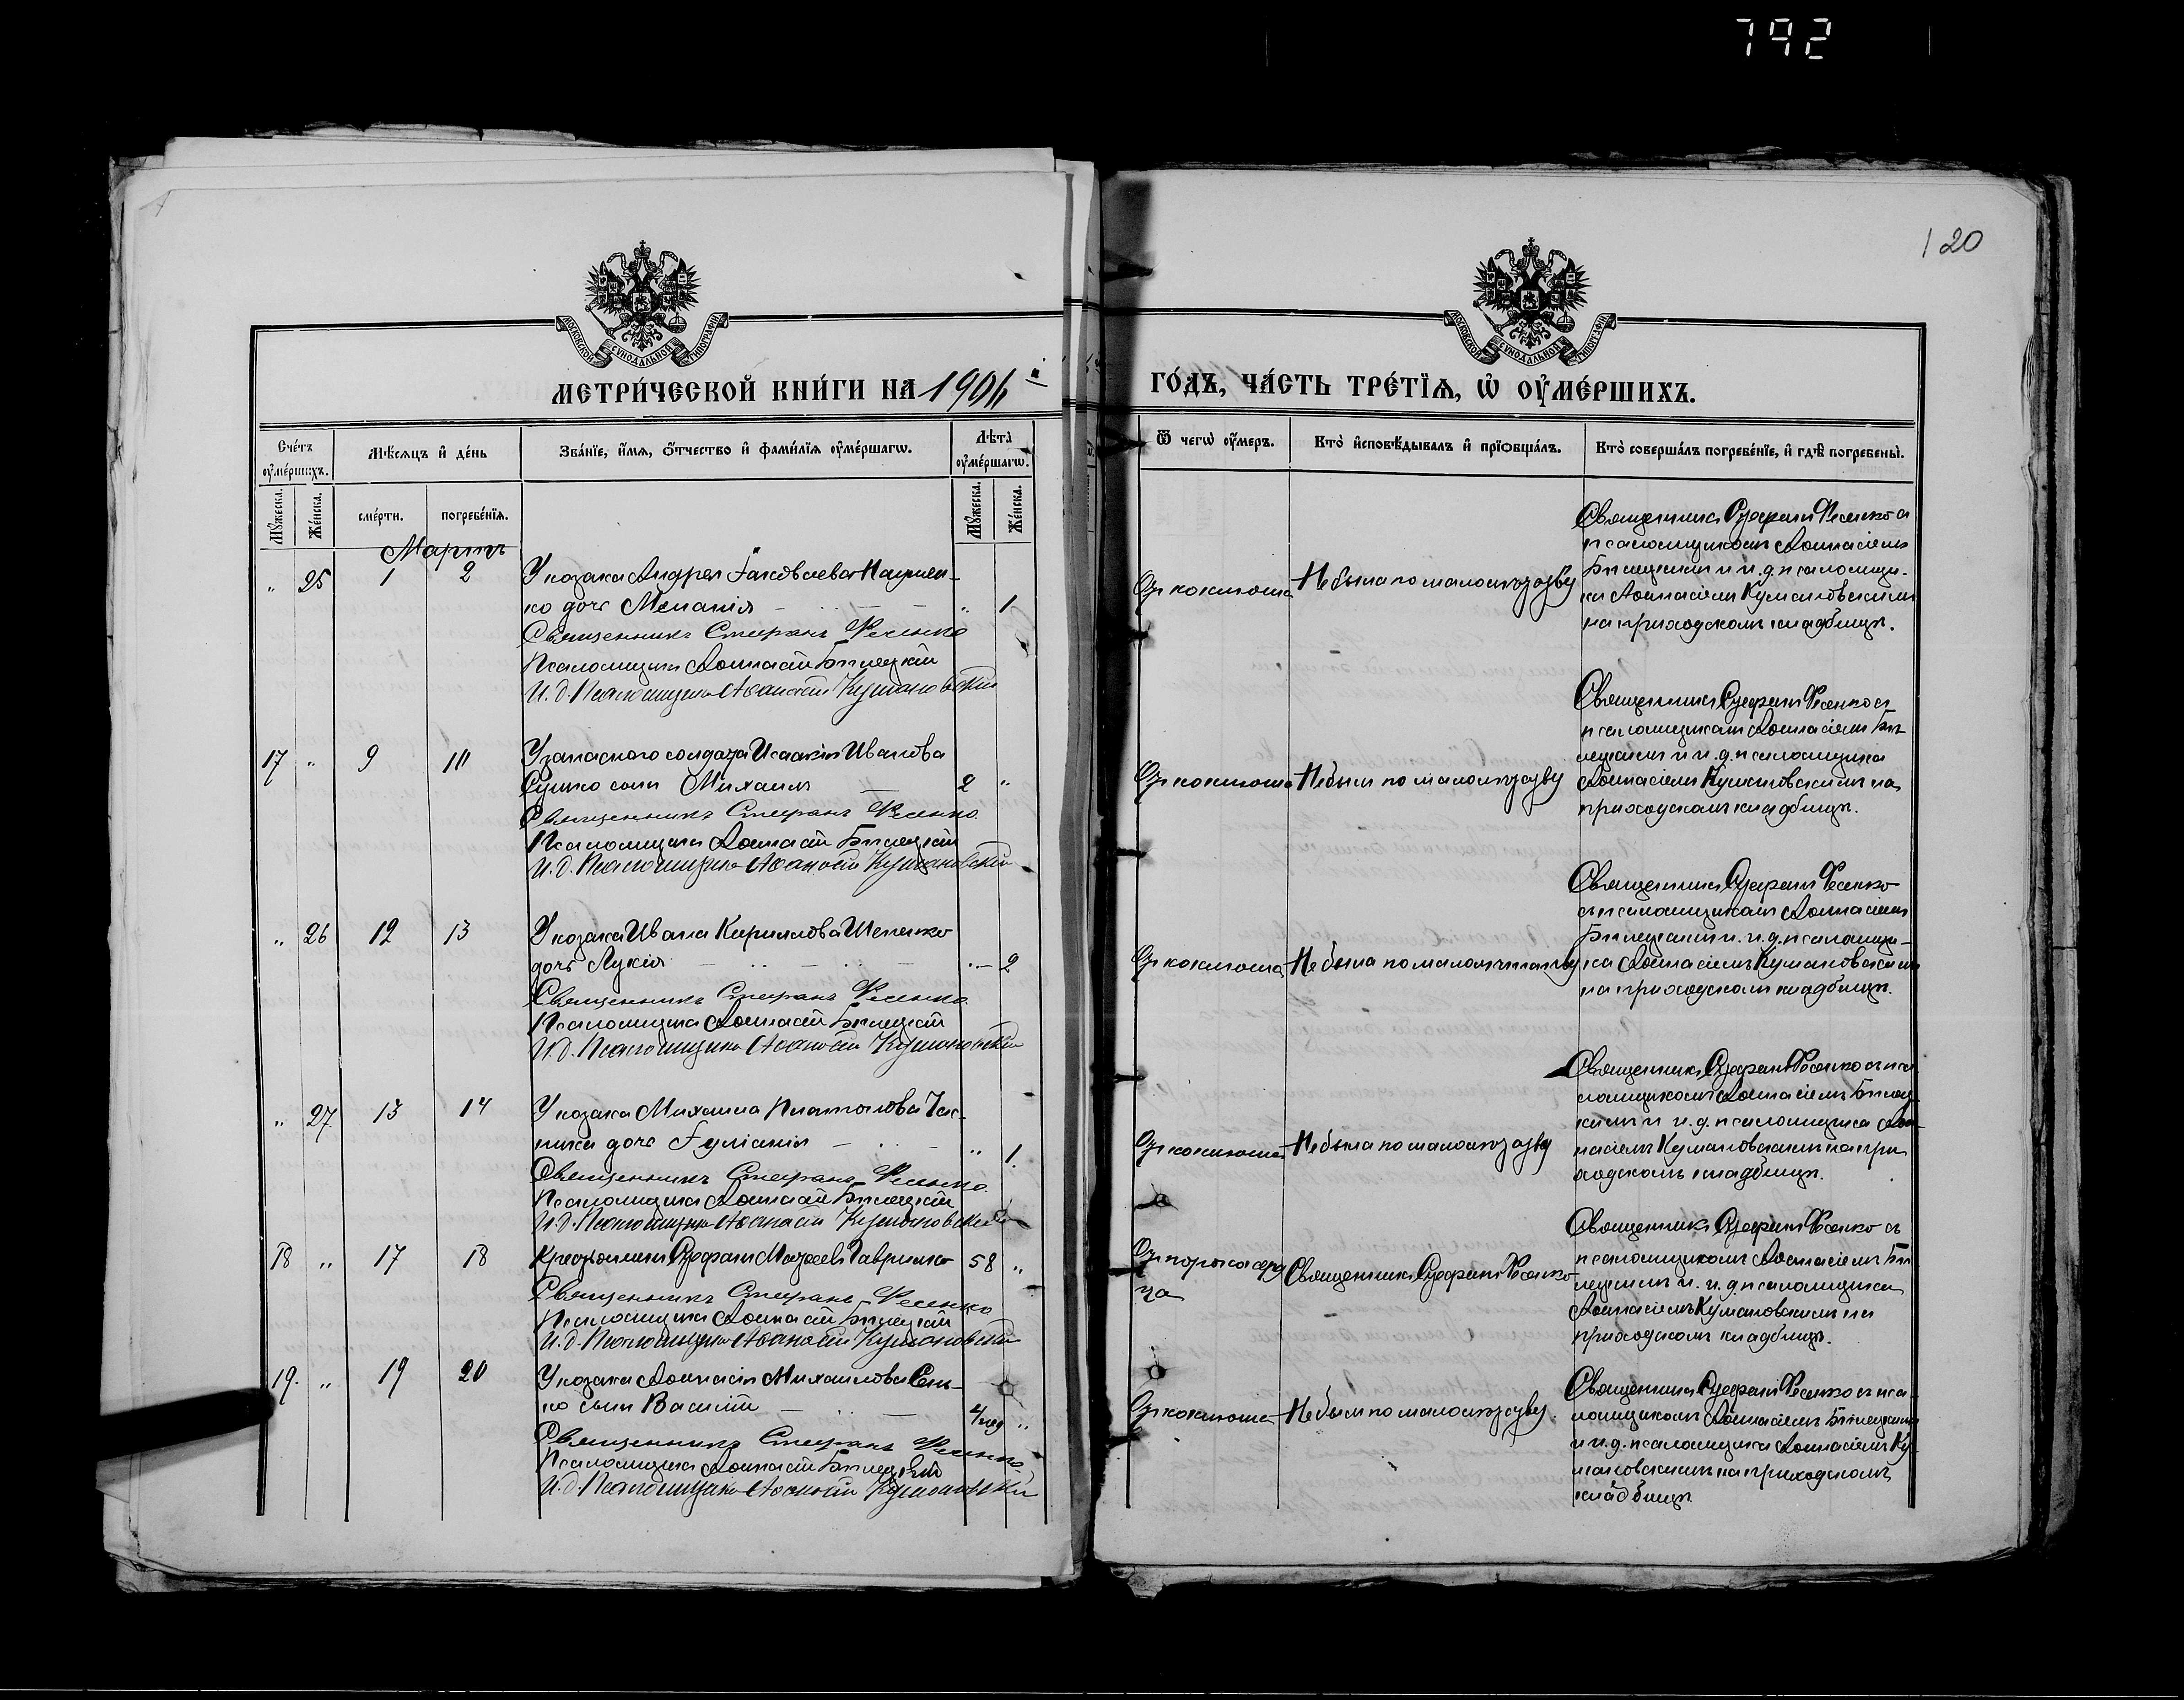 792
120
МОСКОВСКОЙ СѴНОДАЛЬНОЙ ТИПОГРАФІИ
МОСКОВСКОЙ СѴНОДАЛЬНОЙ ТИПОГРАФІИ
МЕТРИ́ЧЕСКОЙ КНИ́ГИ НА 1906й
ГО́ДЪ, ЧА́СТЬ ТРЕ́ТЇѦ, Ѡ҆ ОУ҆МЕ́РШИХЪ.
Сче́тъ оумє́ршихъ.
Мѣ́сяцъ и҆ де́нь
Зва́нїе, и҆́мѧ, ѻ҆́тчество и҆ фами́лїѧ оумє́ршагѡ.
Лѣ́та̀ оумє́ршагѡ.
Мꙋ́жеска. Же́нска.
сме́рти. погребе́нїѧ.
Мꙋ́жеска. Же́нска.
Ѿ чегѡ̀ оу҆́меръ.
Кто̀ и҆сповѣ́дывалъ и҆ прїѻбща́лъ.
Кто̀ соверша́лъ погребе́нїе, и҆ гдѣ̀ погребены̀.
Мартъ
" 25 1 2 У козака Андрея Іаковлева
ко дочь Меланія " 1
Священникъ Стефанъ Фесенко
Псаломщикъ Аѳанасій Билецкій
И. д. Псаломщика Аѳанасій Кумановскій
От коклюша
Не была по малолѣтству
Священникъ Стефанъ Фесенко съ
псаломщикомъ Аѳанасіемъ
Билецкимъ и и. д. псаломщи-
ка Аѳанасіемъ Кумановскимъ
на приходскомъ кладбищѣ.
17 " 9 10 У запасного солдата Исаакія Иванова
сынъ Михаилъ 2 "
Священникъ Стефанъ Фесенко
Псаломщикъ Аѳанасій Билецкій
И. д. Псаломщика Аѳанасій Кумановскій
От коклюша
Не былъ по малолѣтству
Священникъ Стефанъ Фесенко съ
псаломщикомъ Аѳанасіемъ Би-
лецкимъ и и. д. псаломщика
Аѳанасіемъ Кумановскимъ на
приходскомъ кладбищѣ.
" 26 12 13 У козака Ивана Кириллова Шепенко
дочь Лукія " 2
Священникъ Стефанъ Фесенко
Псаломщикъ Аѳанасій Билецкій
И. д. Псаломщика Аѳанасій Кумановскій
От коклюша
Не была по малолѣтству
Священникъ Стефанъ Фесенко
съ псаломщикомъ Аѳанасіемъ
Билецкимъ и. и. д. псаломщи-
ка Аѳанасіемъ Кумановскимъ
на приходскомъ кладбищѣ.
" 27 13 14 У козака Михаила Платонова
дочь Іуліанія " 1.
Священникъ Стефанъ Фесенко
Псаломщикъ Аѳанасій Билецкій
И. д. Псаломщика Аѳанасій Кумановскій
От коклюша
Не была по малолѣтству
Священникъ Стефанъ Фесенко съ пса-
ломщикомъ Аѳанасіемъ Билец-
кимъ и и. д. псаломщика Аѳа-
насіемъ Кумановскимъ на при
ходскомъ кладбищѣ.
18 " 17 18 Крестьянинъ Стефанъ Матѳеевъ Гавриленко 58 "
Священникъ Стефанъ Фесенко
Псаломщикъ Аѳанасій Билецкій
И. д. Псаломщика Аѳанасій Кумановскій
От порока серд
ца
Священникъ Стефанъ Фесенко
Священникъ Стефанъ Фесенко съ
псаломщикомъ Аѳанасіемъ Би
лецкимъ и. и. д. псаломщика
Аѳанасіемъ Кумановскимъ на
приходскомъ кладбищѣ.
19. " 19 20 У козака Аѳанасія Михаилова Сень-
ко сынъ Василій 4/нед "
Священникъ Стефанъ Фесенко
Псаломщикъ Аѳанасій Билецкій
И. д. Псаломщика Аѳанасій Кумановскій
От коклюша
Не былъ по малолѣтству.
Священникъ Стефанъ Фесенко съ пса-
ломщикомъ Аѳанасіемъ Билецкимъ
и и. д. псаломщика Аѳанасіемъ Ку-
мановскимъ на приходскомъ
кладбищѣ